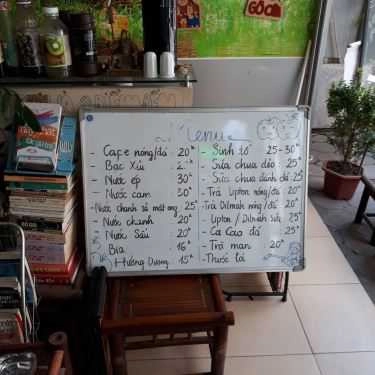 GÓC
Menu
- Cafe nóng/đá 20k
- Bạc Xỉu
- Nước ép 30k
- Nước cam 30k
- Nước chanh sả mật ong 25k
- Nước chanh 20k
- Nước Sấu 20k
- Bia 16k
- Hướng Dương 15k
- Sinh tố 25-30k
- Sữa chua dẻo 25k
- Sữa chua đánh đá 25k
- Trà Lipton nóng/đá 20k
- Trà Dilmah nóng/đá 20k
- Lipton / Dilmah sữa 25k
- Ca Cao đá 25k
- Trà man 20k
- Thuốc lá